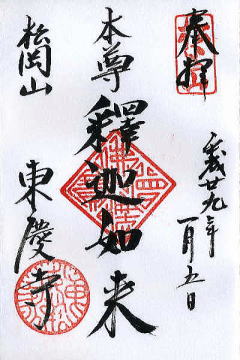 奉拝
平成廿九年一月五日
本尊
釋迦如来
松岡山
東慶寺